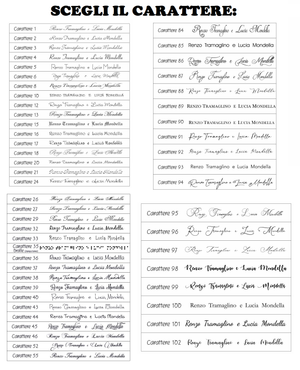 SCEGLI IL CARATTERE:
Carattere 1 Renzo Tramaglino e Lucia Mondella
Carattere 2 Renzo Tramaglino e Lucia Mondella
Carattere 3 Renzo Tramaglino e Lucia Mondella
Carattere 4 Renzo Tramaglino e Lucia Mondella
Carattere 5 Renzo Tramaglino e Lucia Mondella
Carattere 6 Renzo Tramaglino e Lucia Mondella
Carattere 8 Renzo Tramaglino e Lucia Mondella
Carattere Renzo Tramaglino e Lucia Mondella
Carattere 12 Renzo Tramaglino e Lucia Mondella
Carattere 13 Renzo Tramaglino e Lucia Mondella
Carattere 15 Renzo Tramaglino e Lucia Mondella
Carattere 16 Renzo Tramaglino e Lucia Mondella
Carattere 17 Renzo Tramaglino e Lucia Mondella
Carattere 18 Renzo Tramaglino e Lucia Mondella
Carattere 20 Renzo Tramaglino e Lucia Mondella
Carattere 21 Renzo Tramaglino e Lucia Mondella
Carattere 24 Renzo Tramaglino e Lucia Mondella
Carattere 26 Renzo Tramaglino e Lucia Mondella
Carattere 27 Renzo Tramaglino e Lucia Mondella
Carattere 29 Renzo Tramaglino e Lucia Mondella
Carattere 32 Renzo Tramaglino e Lucia Mondella
Carattere 33 Renzo Tramaglino e Lucia Mondella
Carattere 35
Carattere 36 Renzo Tramaglino e Lucia Mondella
Carattere 37 Renzo Tramaglino e Lucia Mondella
Carattere 38 Renzo Tramaglino e Lucia Mondella
Carattere 39 Renzo Tramaglino e Lucia Mondella
Carattere 40 Renzo Tramaglino e Lucia Mondella
Carattere 44 Renzo Tramaglino e Lucia Mondella
Carattere 45 Renzo Tramaglino e Lucia Mondella
Carattere 47 Renzo Tramaglino e Lucia Mondella
Carattere 52 Renzo Tramaglino e Lucia Mondella
Carattere 55 Renzo Tramaglino e Lucia Mondella
Carattere 84 Renzo Tramaglino e Lucia Mondella
Carattere 85 Renzo Tramaglino e Lucia Mondella
Carattere 86 Renzo Tramaglino e Lucia Mondella
Carattere 87 Renzo Tramaglino e Lucia Mondella
Carattere 88 Renzo Tramaglino e Lucia Mondella
Carattere 89 RENZO TRAMAGLINO E LUCIA MONDELLA
Carattere 90 RENZO TRAMAGLINO E LUCIA MONDELLA
Carattere 91 Renzo Tramaglino e Lucia Mondella
Carattere 92 Renzo Tramaglino e Lucia Mondella
Carattere 93 Renzo Tramaglino e Lucia Mondella
Carattere 94 Renzo Tramaglino e Lucia Mondella
Carattere 95 Renzo Tramaglino e Lucia Mondella
Carattere 96 Renzo Tramaglino e Lucia Mondella
Carattere 97 Renzo Tramaglino e Lucia Mondella
Carattere 98 Renzo Tramaglino e Lucia Mondella
Carattere 99 Renzo Tramaglino e Lucia Mondella
Carattere 100 Renzo Tramaglino e Lucia Mondella
Carattere 101 Renzo Tramaglino e Lucia Mondella
Carattere 102 Renzo Tramaglino e Lucia Mondella